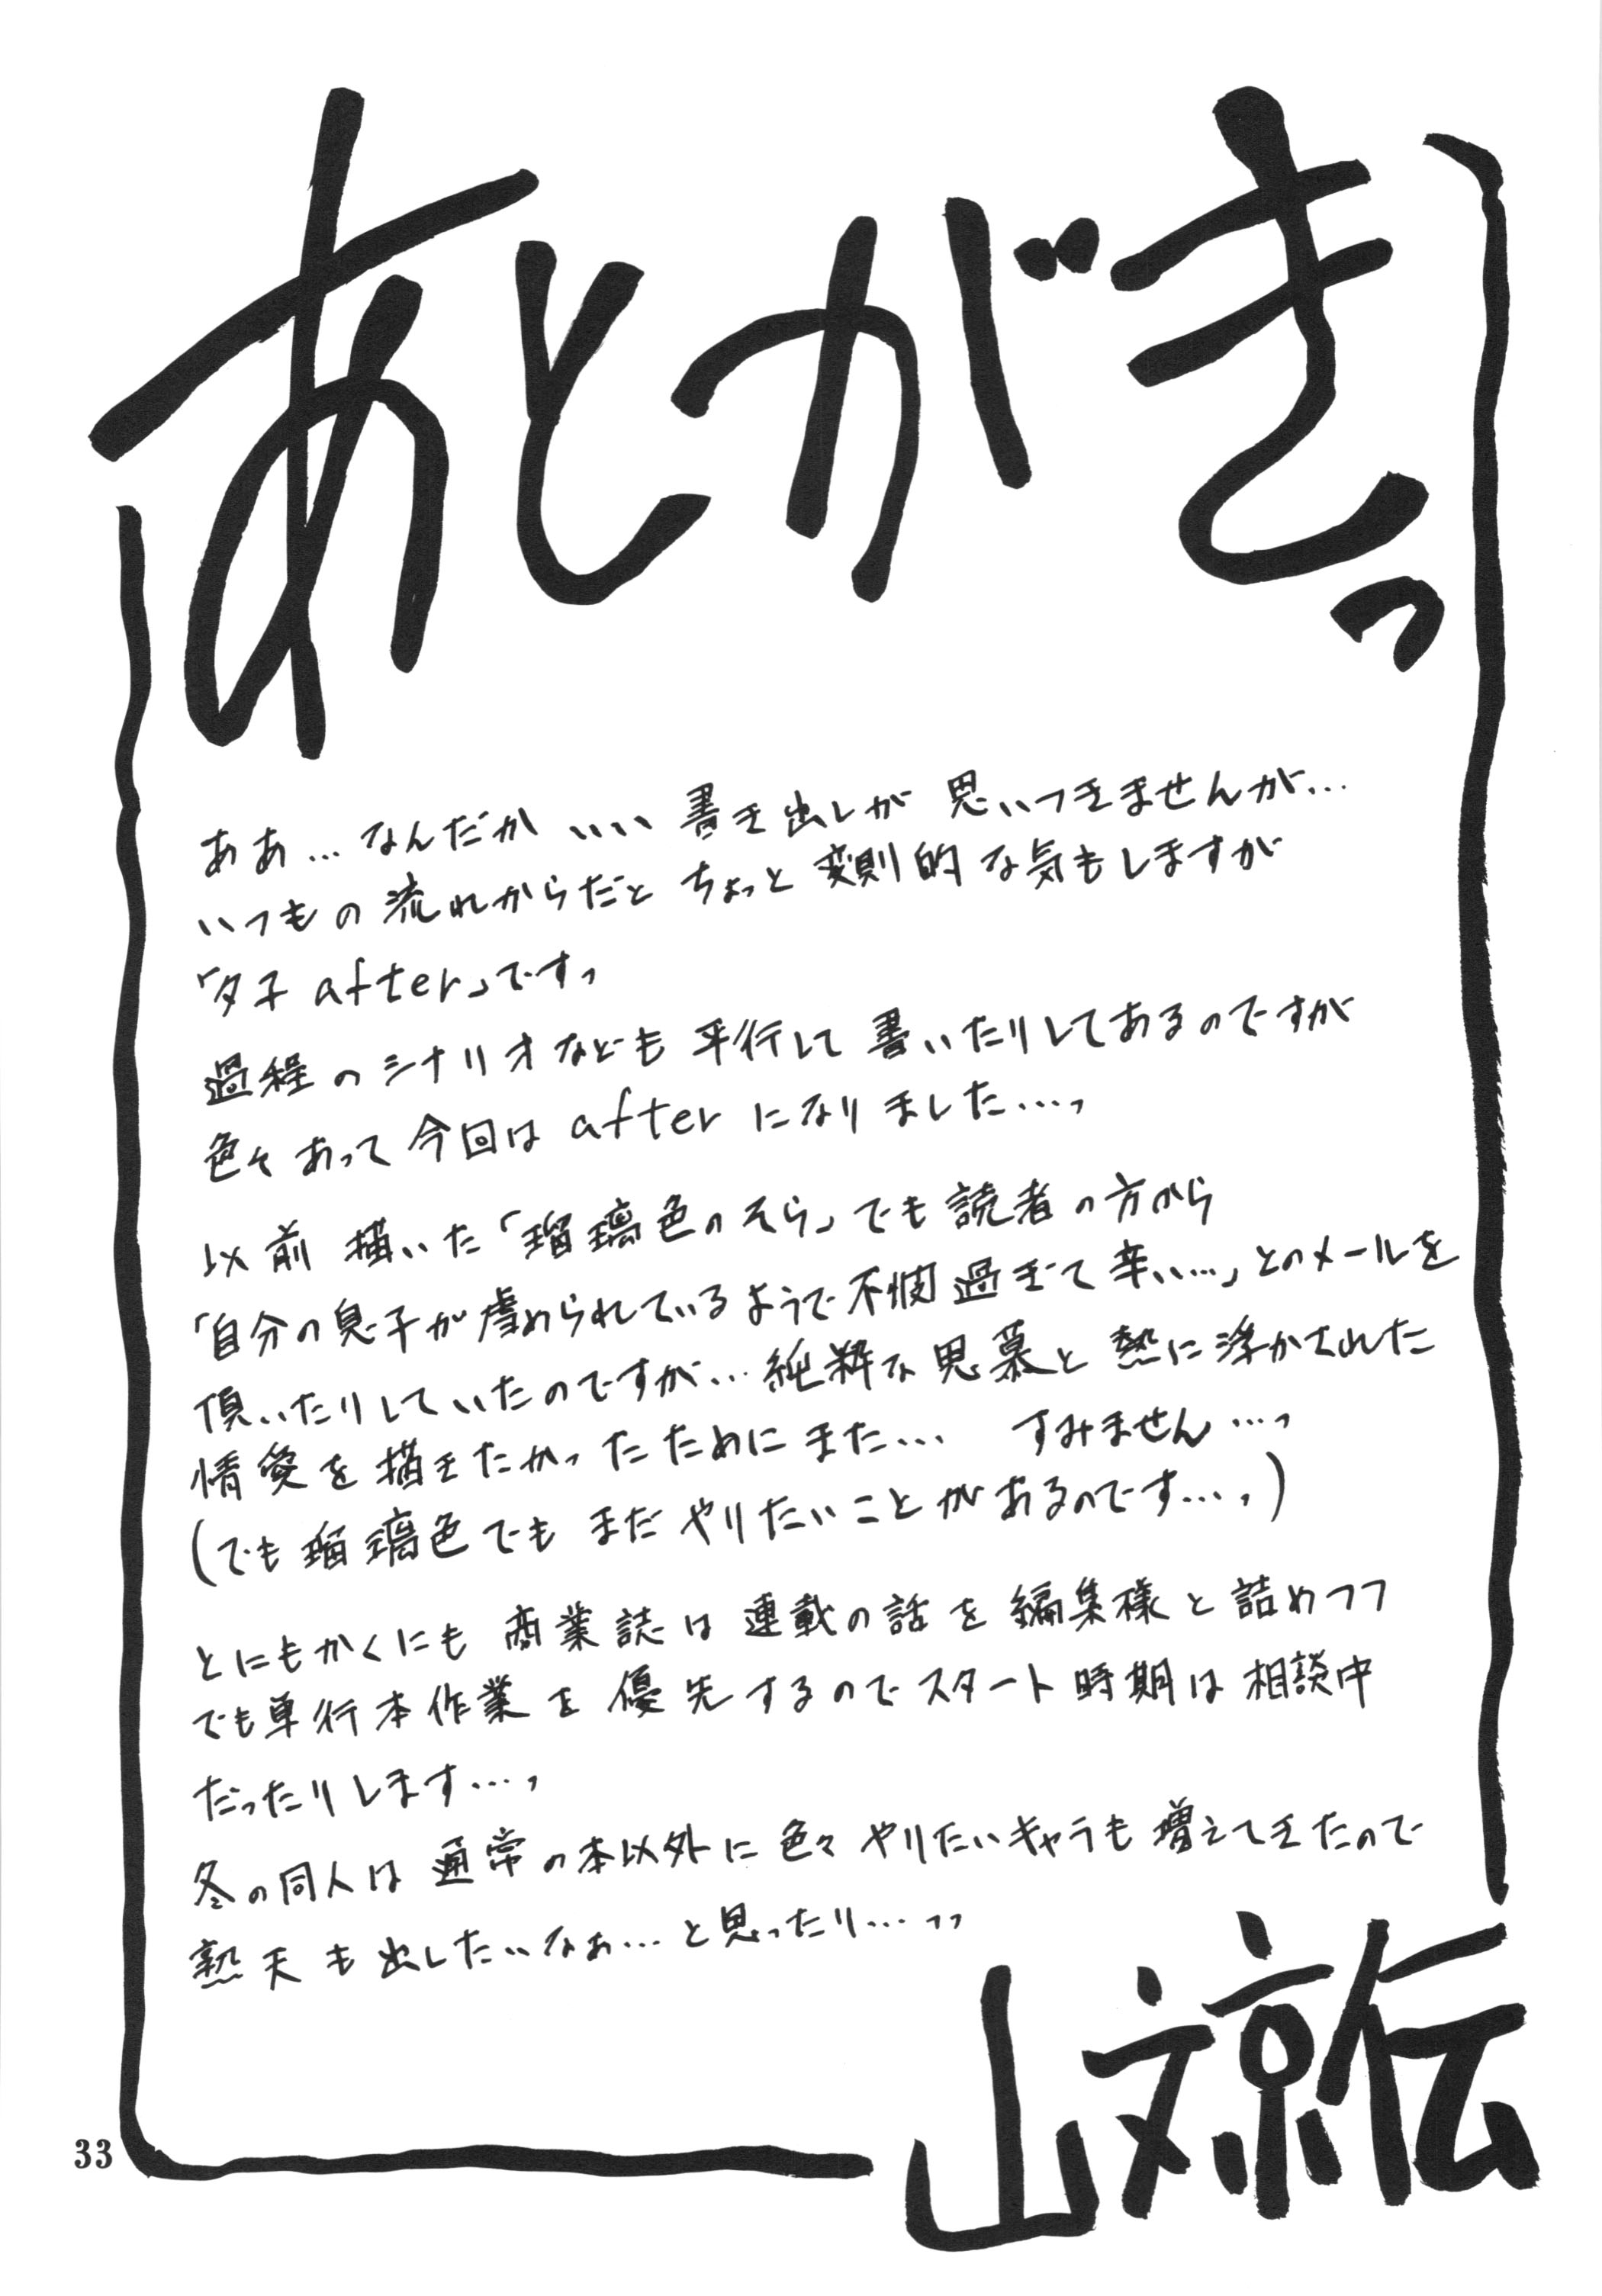 あとがきっ
ああ…なんだかいい書き出しが思いつきませんが…
いつもの流れからだとちょっと変則的な気もしますが
「夕子after」ですっ
過程のシナリオなども平行して書いたりしてあるのですが
色々あって今回はafterになりました…っ
以前描いた「瑠璃色のそら」でも読者の方から
「自分の息子が虐められているようで不憫過ぎて辛い…」とのメールを
頂いたりしていたのですが…純粋な思慕と熱に浮かされた
情愛を描きたかったためにまた… すみません…っ
(でも瑠璃色でもまだやりたいことがあるのです…っ)
とにもかくにも商業誌は連載の話を編集様と詰めつつ
でも単行本作業を優先するのでスタート時期は相談中
だったりします…っ
冬の同人は通常の本以外に色々やりたいキャラも増えてきたので
熟天も出したいなぁ…と思ったり…っっ
山文京伝
33